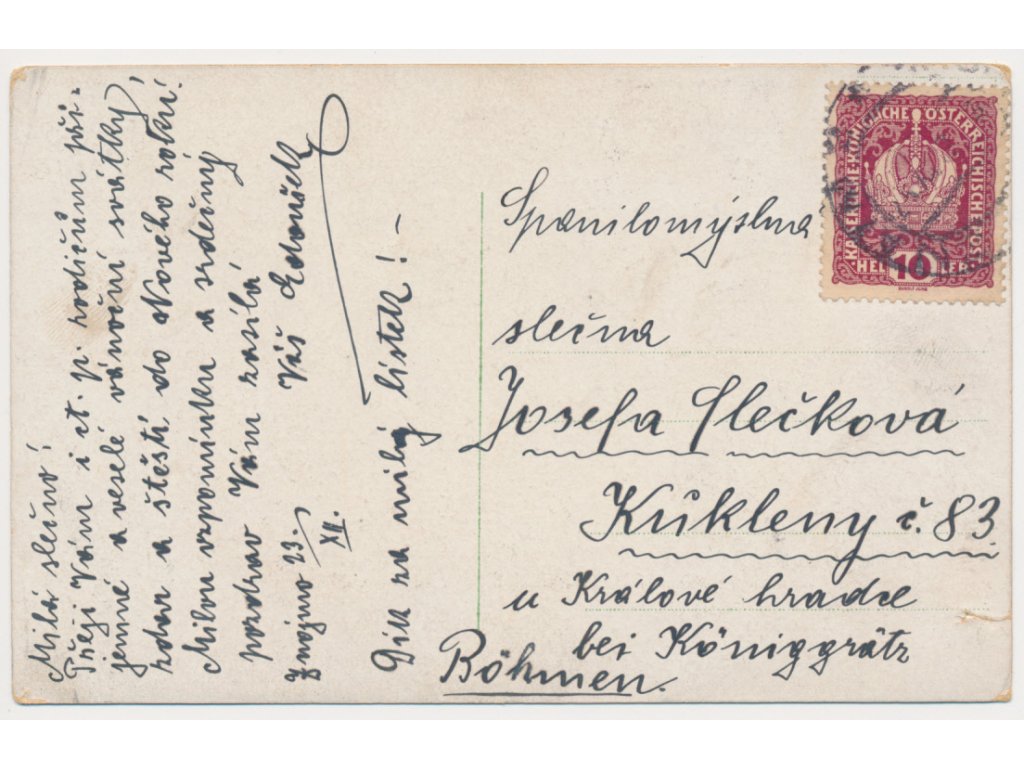 Milá slečno!
Přeji Vám i ct. p. rodičům pří-
jemné a veselé vánoční svátky
zdar a štěstí do Nového roku!
Milou vzpomínku a srdečný
pozdrav Vám zasílá
Znojmo 23./XII. Váš
Dík za milý lístek! –
Spanilomyslna
slečna
Josefa Slečková
Kukleny č. 83
u Králové hradce
bei Königgrätz
Böhmen.
KAISERLICHE KÖNIGLICHE ÖSTERREICHISCHE POST
HELLER 10 HELLER